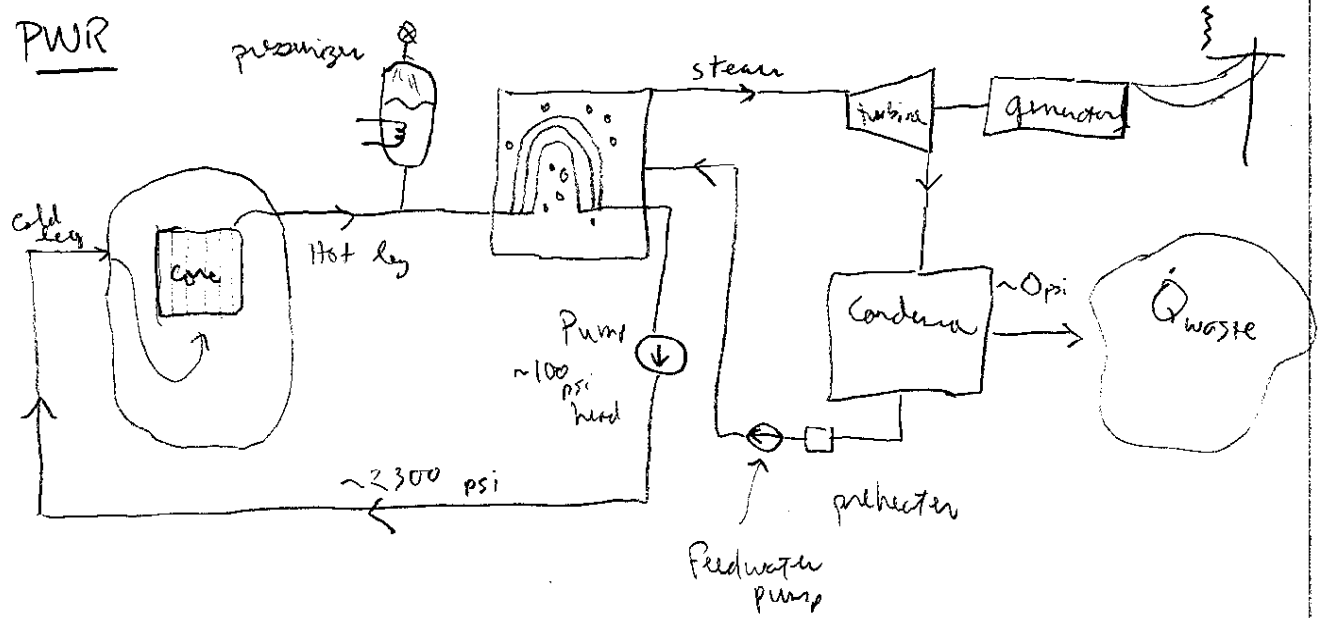 PWR
pressurizer
steam
turbine
generator
cold
leg
core
Hot leg
Pump
~100
psi
head
Condenser
~0psi
Q̇waste
~2300 psi
preheater
Feedwater
pump